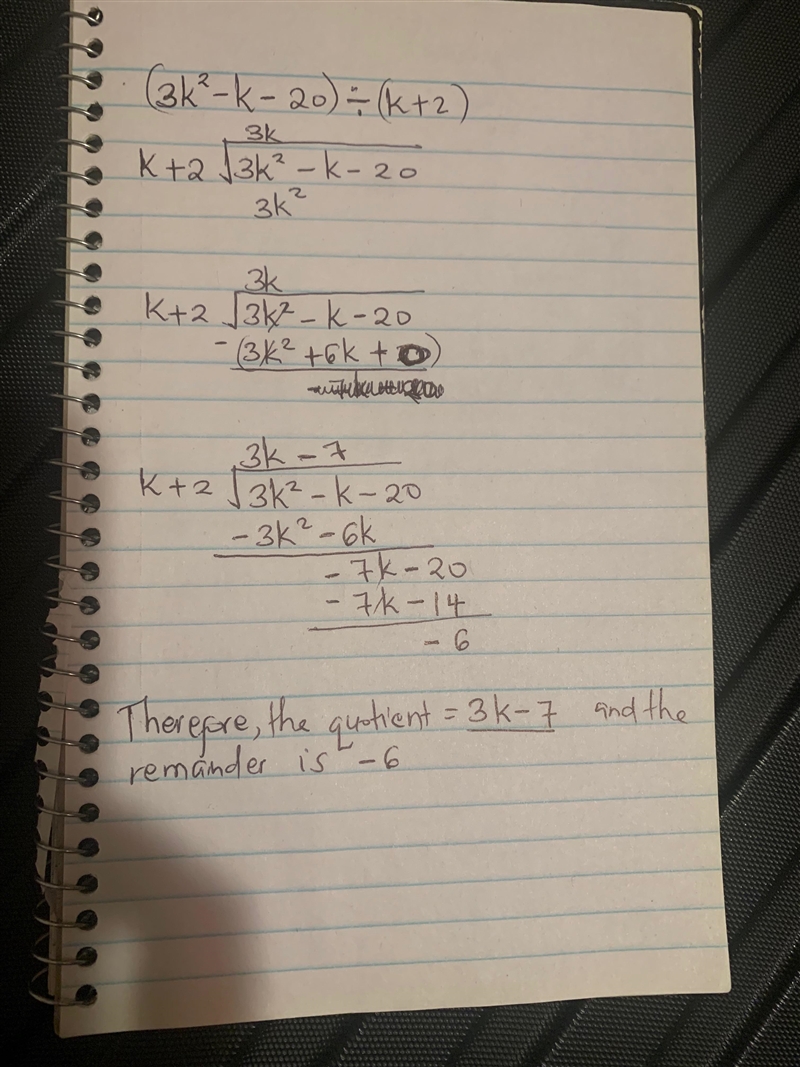 (3k² - k - 20) ÷ (k+2)
3k
k+2 √3k² - k - 20
3k²
3k
k+2 √3k² - k - 20
- (3k² + 6k + 0)
3k - 7
k+2 √3k² - k - 20
- 3k² - 6k
- 7k - 20
- 7k - 14
- 6
Therefore, the quotient = 3k - 7 and the
remainder is - 6